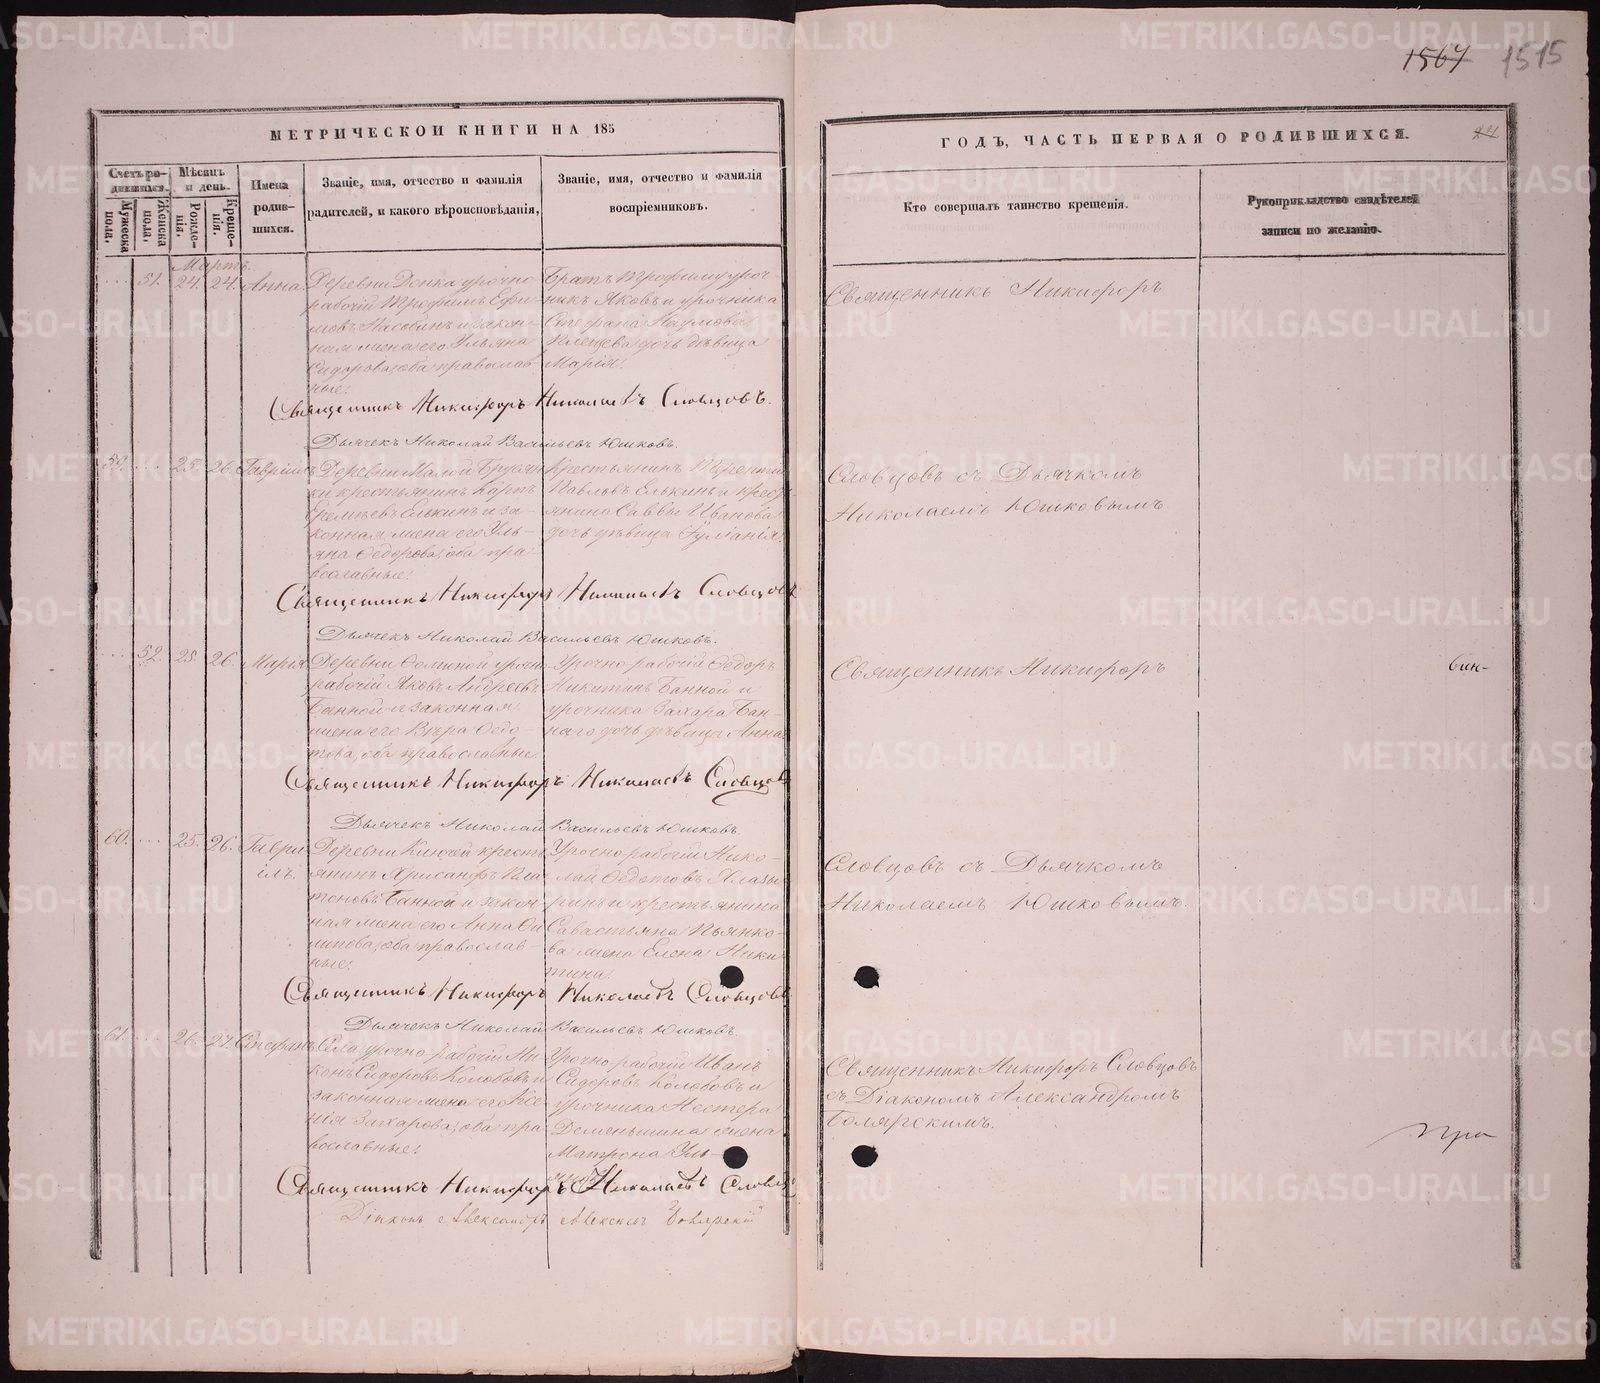 1567 1515
МЕТРИЧЕСКОЙ КНИГИ НА 185
Счетъ родившихся.
Мѣсяцъ и день.
Имена родившихся.
Званіе, имя, отчество и фамилія родителей, и какого вѣроисповѣданія,
Званіе, имя, отчество и фамилія воспріемниковъ.
Мужеска пола.
Женска пола.
Рожденія.
Крещенія.
ГОДЪ, ЧАСТЬ ПЕРВАЯ О РОДИВШИХСЯ.
Кто совершалъ таинство крещенія.
Рукоприкладство свидѣтелей записи по желанію.
Мартъ.
51. 24. 24. Анна
рабочій Трофимъ Ефи-
мовъ и закон-
ная жена его Ульяна
Сидорова, оба православ
ные.
Братъ Трофиму уроч-
никъ Яковъ и урочника
Стефана Наумова
дочь дѣвица
Марія.
Священникъ Никифоръ
Священникъ Никифоръ Николаевъ Словцовъ.
Дьячекъ Николай Васильевъ Юшковъ.
59. 25. 26. Гавріилъ
Деревни Малой Брусян
ки крестьянинъ Карпъ
Елькинъ и за-
конная жена его Уль-
яна Ѳедорова, оба пра
вославные.
Крестьянинъ
Павловъ Елькинъ и крест
янина Саввы Иванова
дочь дѣвица
Словцовъ съ Дьячкомъ
Николаемъ Юшковымъ
Священникъ Никифоръ Николаевъ Словцовъ
Дьячекъ Николай Васильевъ Юшковъ.
52. 25. 26. Марія
Деревни урочно
рабочій Яковъ Андреевъ
Банной и законная
жена его Вѣра Ѳедо-
това, оба православные
Урочно рабочій Ѳедоръ
Никитинъ Банной и
урочника Захара Бан-
наго дочь дѣвица Анна
Священникъ Никифоръ
вин-
Священникъ Никифоръ Николаевъ Словцовъ
Дьячекъ Николай Васильевъ Юшковъ.
60. 25. 26. Гаври-
илъ.
Деревни Ключей крестья
янинъ Пла
тоновъ Банной и закон-
ная жена его Анна Фи
липова, оба православ-
ные.
Урочно рабочій Нико-
лай Ѳедотовъ
и крестьянина
Савастьяна Пьянко-
ва жена Елена Ники
тина.
Словцовъ съ Дьячкомъ
Николаемъ Юшковымъ.
Священникъ Никифоръ Николаевъ Словцовъ
Дьячекъ Николай Васильевъ Юшковъ.
61. 26. 27. Стефанъ
Села урочно рабочій Ни
конъ Сидоровъ Колобовъ и
законная жена его Ксе-
нія Захарова, оба пра
вославные.
Урочно рабочій Иванъ
Сидоровъ Колобовъ и
урочника Нестера
Деменьшина жена
Матрона Уль-
Священникъ Никифоръ Словцовъ
съ Діакономъ Александромъ
Боярскимъ.
пра
Священникъ Никифоръ Николаевъ Словцо
Діаконъ Александръ Алексѣевъ Боярскій
METRIKI.GASO-URAL.RU